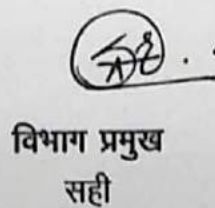 विभाग प्रमुख
सही